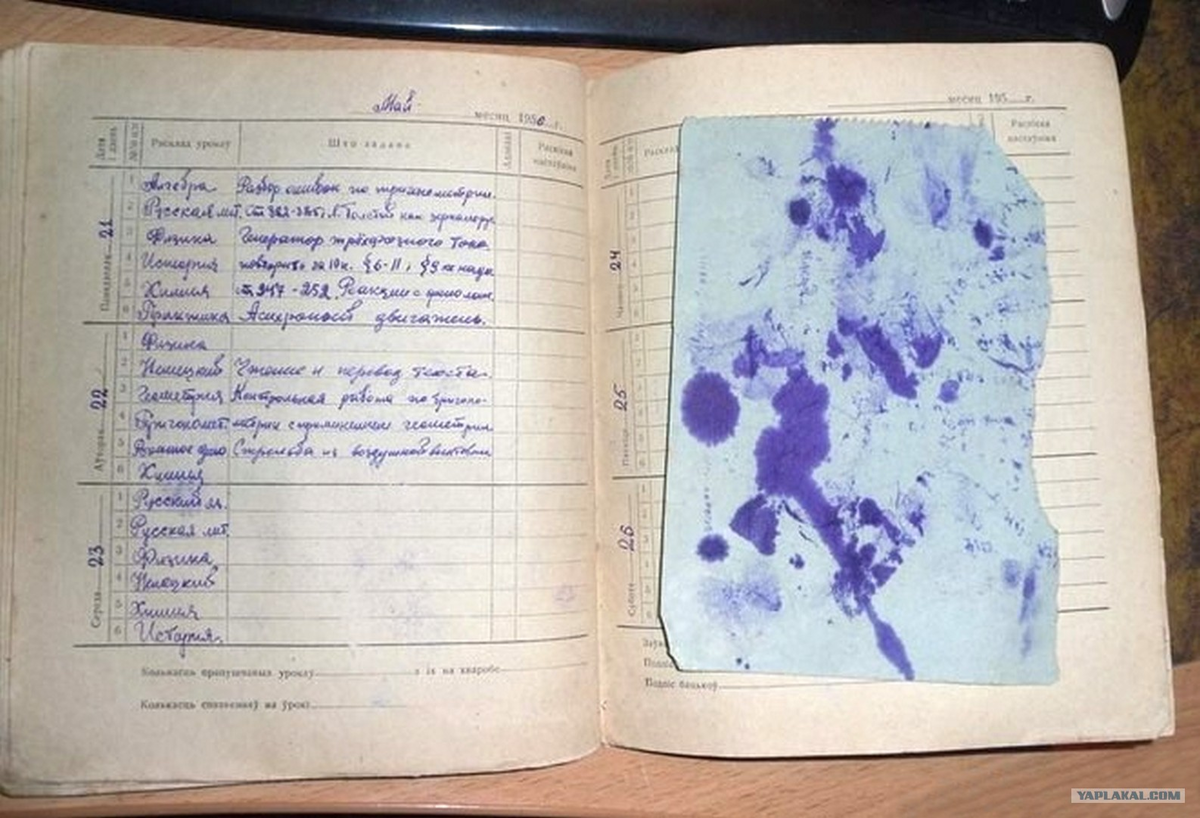 Май
месяц 1956 г.
Дата і дзень
№№ п/п
Расклад урокаў
Што задана
Адзнакі
Распіска настаўніка
Панядзелак 21
1 Алгебра Разбор ошибок по тригонометрии.
2 Русская лит. Л. Толстой как зеркало рус.
3 Физика Генератор трёхфазного тока
4 История повторить за 10 к. § 6-11, § 9 не надо
5 Химия ст. 247-252. Реакции с
6 Практика Асихронной двигатель.
Аўторак 22
1 Физика
2 Немецкий Чтение и перевод текста.
3 Геометрия Контрольная работа по тригоно-
4 Тригономет. метрии с применением геометрии
5 Военное дело Стрельба из воздушной винтовки
6 Химия
Серада 23
1 Русский яз.
2 Русская лит.
3 Физика
4 Немецкий
5 Химия
6 История.
Колькасць прапушчаных урокаў з іх на хваробе
Колькасць спазненняў на ўрокі
месяц 195 г.
Расклад
Распіска настаўніка
24
25
26
Субота
Подпіс бацькоў
YAPLAKAL.COM